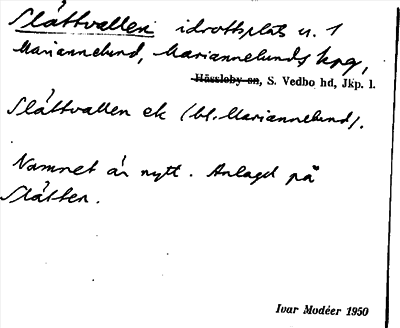 Slåttvallen idrottsplats n. 1
Mariannelund, Mariannelunds kpg,
Hässleby sn, S. Vedbo hd, Jkp. l.
Slåttvallen ek (bl. Mariannelund).
Namnet är nytt. Anlagd på
Slåtten.
Ivar Modéer 1950